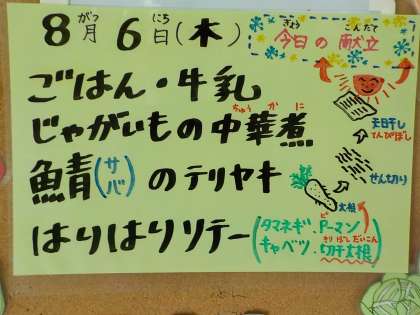 8月 6日(木)
がつ にち
きょう こんだて
今日の献立
ごはん・牛乳
ちゅう か に
じゃがいもの中華煮
鯖(サバ)のテリヤキ
はりはりソテー(タマネギ、ピーマン
キャベツ、切干大根)
きりぼしだいこん
天日干し
てんぴぼし
せん切り
大根